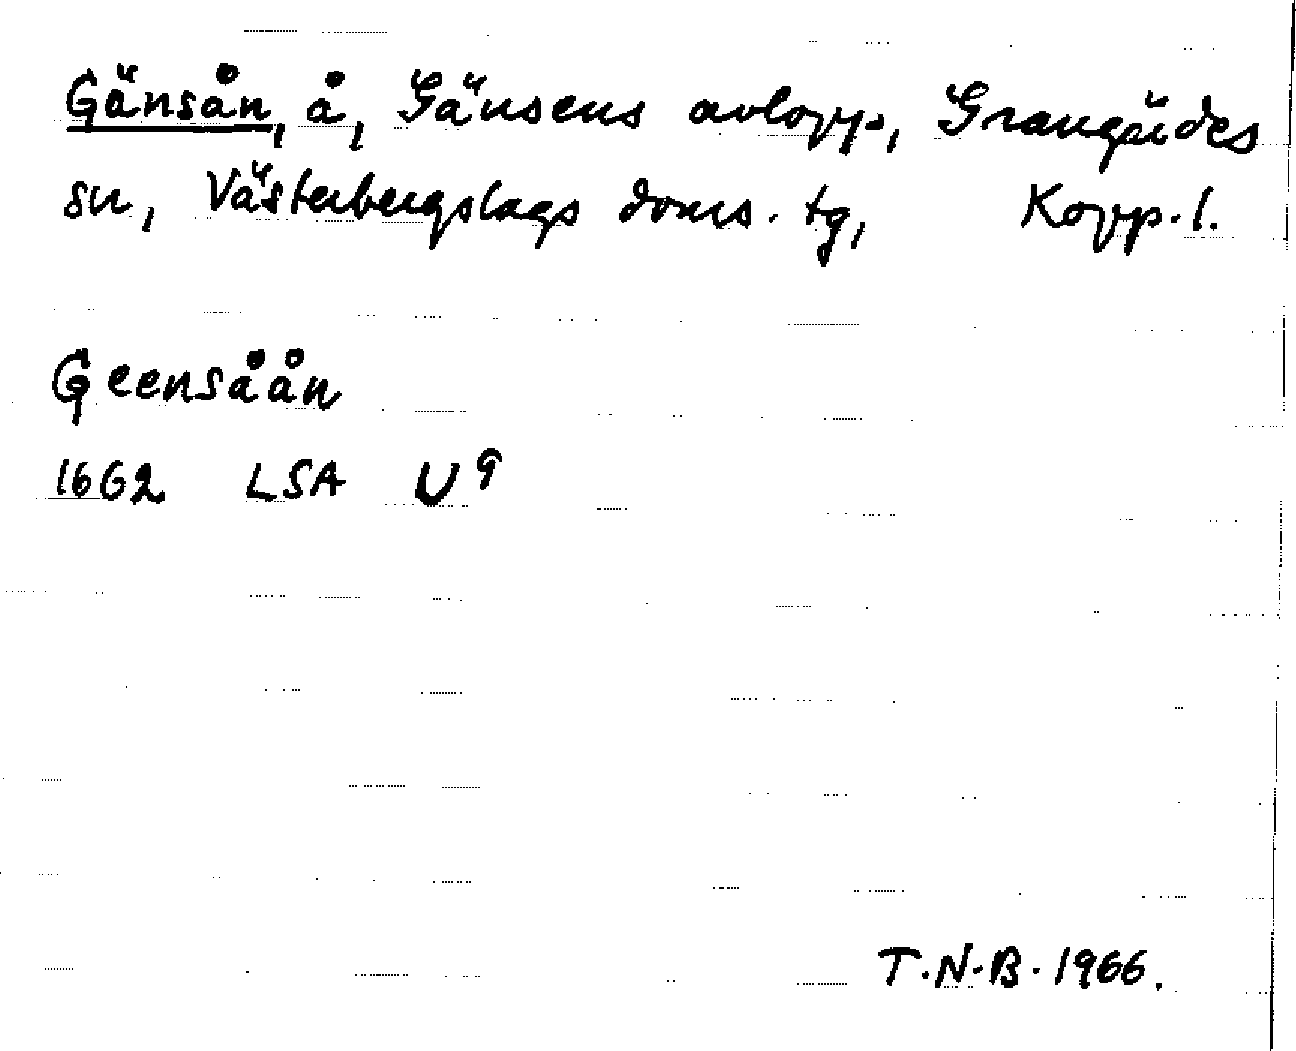 Gänsån, å, Gänsens avlopp, Grangärdes
sn, Västerbergslags doms. tg, Kopp. l.
Geensåån
1662 LSA U9
T.N.B. 1966.